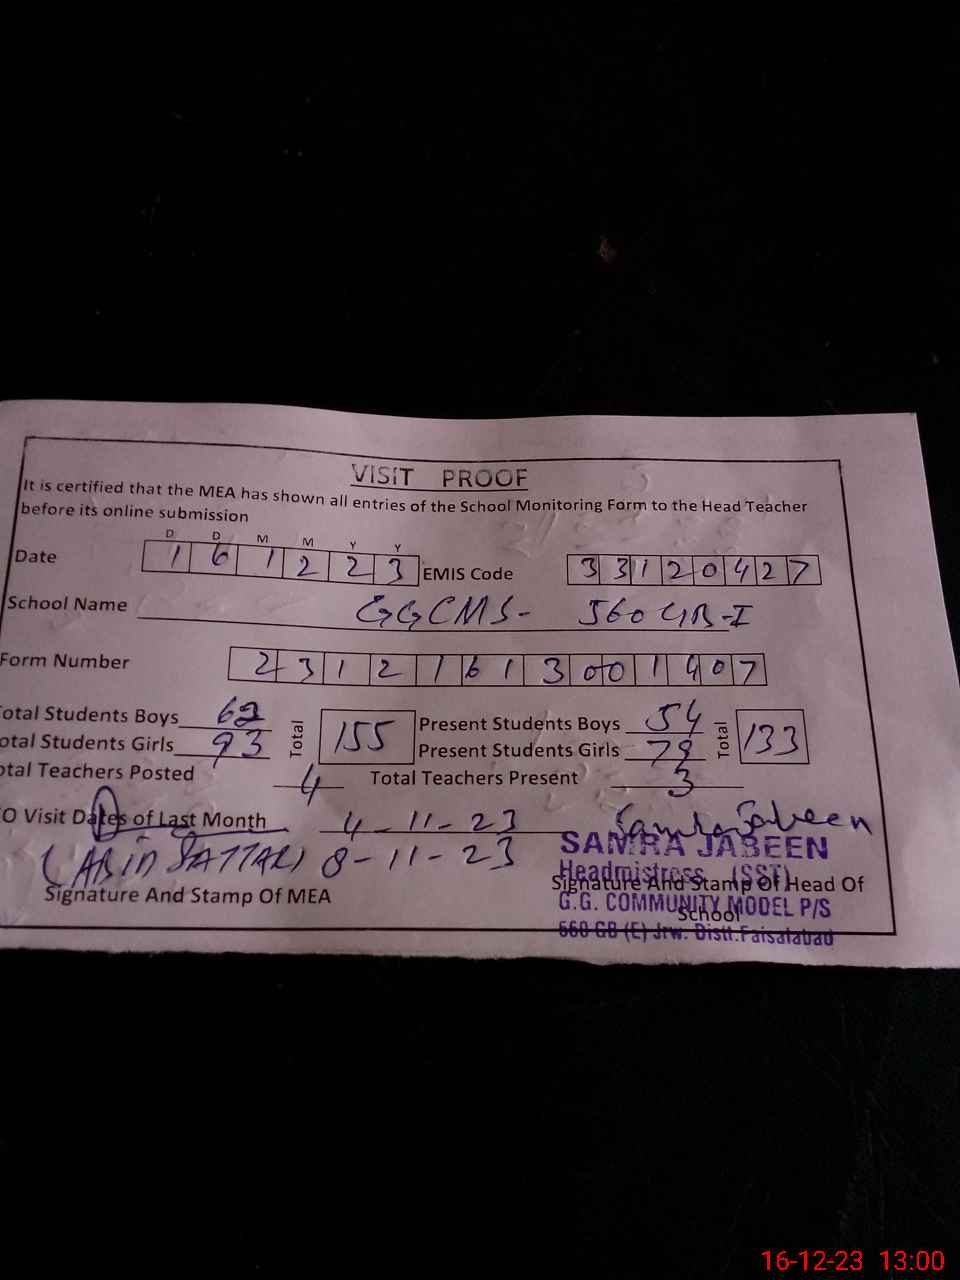 VISIT PROOF
It is certified that the MEA has shown all entries of the School Monitoring Form to the Head Teacher
before its online submission
D D M M Y Y
Date 1 6 1 2 2 3 EMIS Code 3 3 1 2 0 4 2 7
School Name GGCMS- 560 GB-I
Form Number 2 3 1 2 1 6 1 3 0 0 1 4 0 7
otal Students Boys 62 Total 155 Present Students Boys 54 Total 133
otal Students Girls 93 Present Students Girls 79
otal Teachers Posted 4 Total Teachers Present 3
O Visit Dates of Last Month 4-11-23 Samra Jabeen
(ABID SATTAR) 8-11-23
SAMRA JABEEN
Headmistress (SST)
Signature And Stamp Of MEA Signature And Stamp Of Head Of
School
G.G. COMMUNITY MODEL P/S
560 GB (E) Jrw. Distt.Faisalabad
16-12-23 13:00